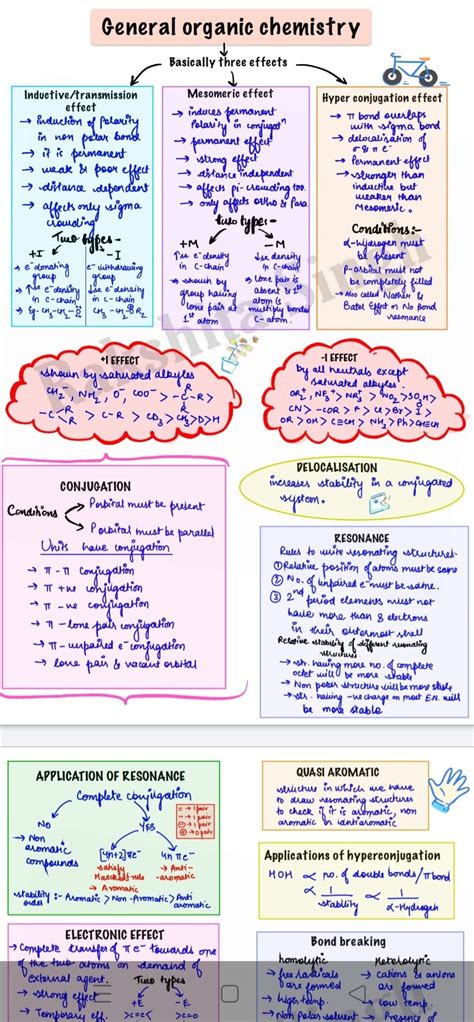 General organic chemistry
Basically three effects
Inductive/transmission
effect
→ Induction of Polarity
in non polar bond
→ it is permanent
→ weak & poor effect
→ distance dependent
→ affects only sigma
crowding
Two types:-
+I
e⁻ donating
group
-I
e⁻ withdrawing
group
in C-chain
in C-chain
Mesomeric effect
→ induces permanent
Polarity in conjugatⁿ
→ permanent effect
→ strong effect
→ distance independent
→ affects pi-crouding too.
→ only affects ortho & Para
two type:-
+M
density
in C-chain
→ shown by
group having
lone pair at
1st atom
-M
density
in C-chain
→ lone pair is
absent & 1st
atom is
multiply bonded
C-atom.
Hyper conjugation effect
→ π bond overlaps
with sigma bond
→ delocalisation of
σ & π e⁻
→ Permanent effect
→ stronger than
inductive but
weaker than
Mesomeric.
Conditions:-
α-Hydrogen must
be present
P-orbital must not
be completely filled
→ Also called Nathan &
Effect or No Bond
resonance
Rakshita Singh
+I EFFECT
shown by saturated alkyles
-I EFFECT
by all neutrals except
saturated alkyles.
CONJUGATION
Conditions
P orbital must be present
P orbital must be parallel
Units have conjugation
→ π - π conjugation
→ π +ve conjugation
→ π -ve conjugation
→ π - lone pair conjugation
→ π - unpaired e⁻ conjugation
→ lone pair & vacant orbital
DELOCALISATION
increases stability in a conjugated
system.
RESONANCE
Rules to write resonating structures-
① Relative position of atoms must be same
② No. of unpaired e⁻ must be same.
③ 2nd period elements must not
have more than 8 electrons
in their outermost shell
Relative stability of different resonating
structures
→ str. having more no. of complete
octet will be more stable
→ Non polar structure will be more stable
→ str. having -ve charge on most E.N. will
be more stable
APPLICATION OF RESONANCE
Complete conjugation
NO
→ Non
aromatic
compounds
YES
[4n+2]πe⁻
satisfy
Huckel rule
→ Aromatic
4n πe⁻
→ Anti-
aromatic
stability :- Aromatic > Non-Aromatic > Anti
aromatic
QUASI AROMATIC
structure in which we have
to draw resonating structures
to check if it is aromatic, non
aromatic or antiaromatic
Applications of hyperconjugation
HOH ∝ no. of double bonds/π bond
∝ 1/stability ∝ 1/α-Hydrogen
ELECTRONIC EFFECT
→ Complete transfer of πe⁻ towards one
of the two atoms on demand of
external agent.
Two types
→ strong effect
→ Temporary eff.
+E
-E
>c=c<
>c=o
Bond breaking
homolytic
→ free radicals
are formed
→ high temp.
→ Non Polar solvent
Heterolytic
→ cations & anions
are formed
→ low temp.
→ Presence of